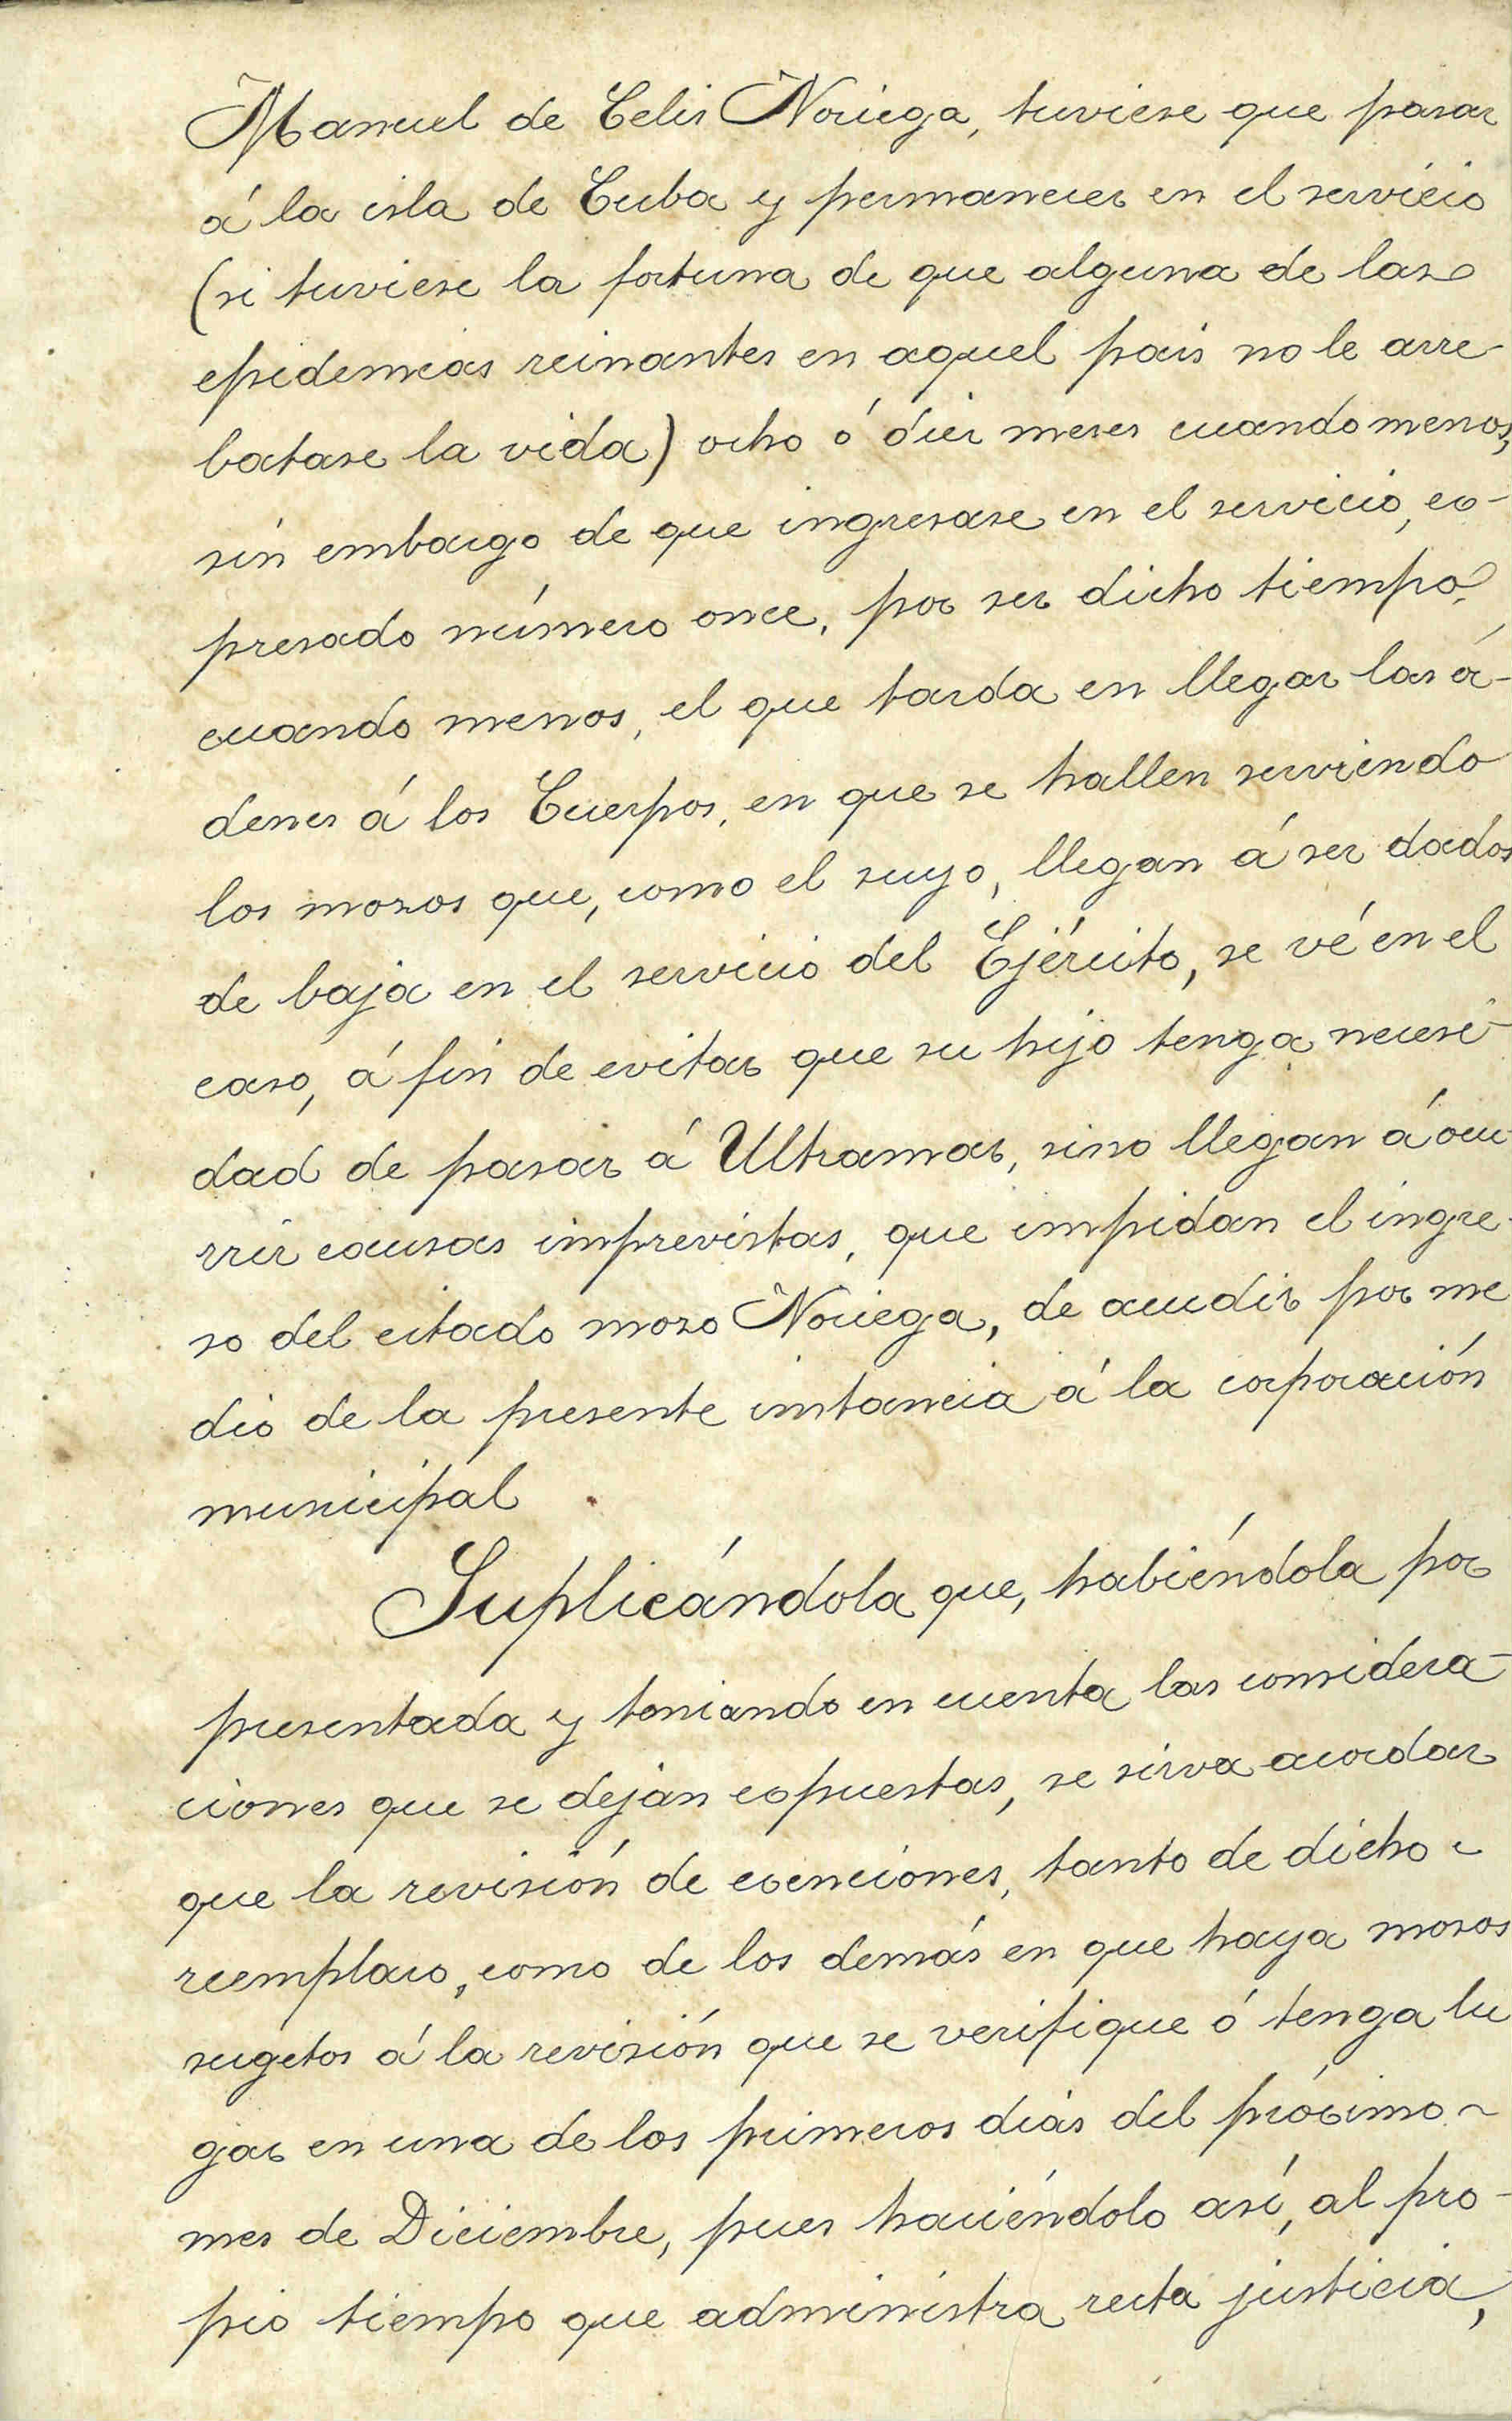 Manuel de Celis Noriega, tuviese que pasar
á la isla de Cuba y permanecer en el servicio
(si tuviese la fortuna de que alguna de las
epidemias reinantes en aquel país no le arre-
batase la vida) ocho ó diez meses cuando menos,
sin embargo de que ingresase en el servicio, ex-
presado número once, por ser dicho tiempo,
cuando menos, el que tarda en llegar las ór-
denes á los Cuerpos, en que se hallen serviendo
los mozos que, como el suyo, llegan á ser dados
de baja en el servicio del Ejército, se vé en el
caso, á fin de evitar que su hijo tenga necesi-
dad de pasar á Ultramar, sino llegan á ocu-
rrir causas imprevistas, que impidan el ingre-
so del citado mozo Noriega, de acudir por me
dio de la presente intancia á la corporación
municipal
Suplicándola que, habiéndola por
presentada y toniando en cuenta las considera-
ciones que se dejan expuestas, se sirva acordar
que la revisión de exenciones, tanto de dicho
reemplazo, como de los demás en que haya mozos
sugetos á la revisión que se verifique ó tenga lu
gar en una de los primeros días del próximo
mes de Diciembre, pues haciéndolo así, al pro-
pio tiempo que administra recta justicia,